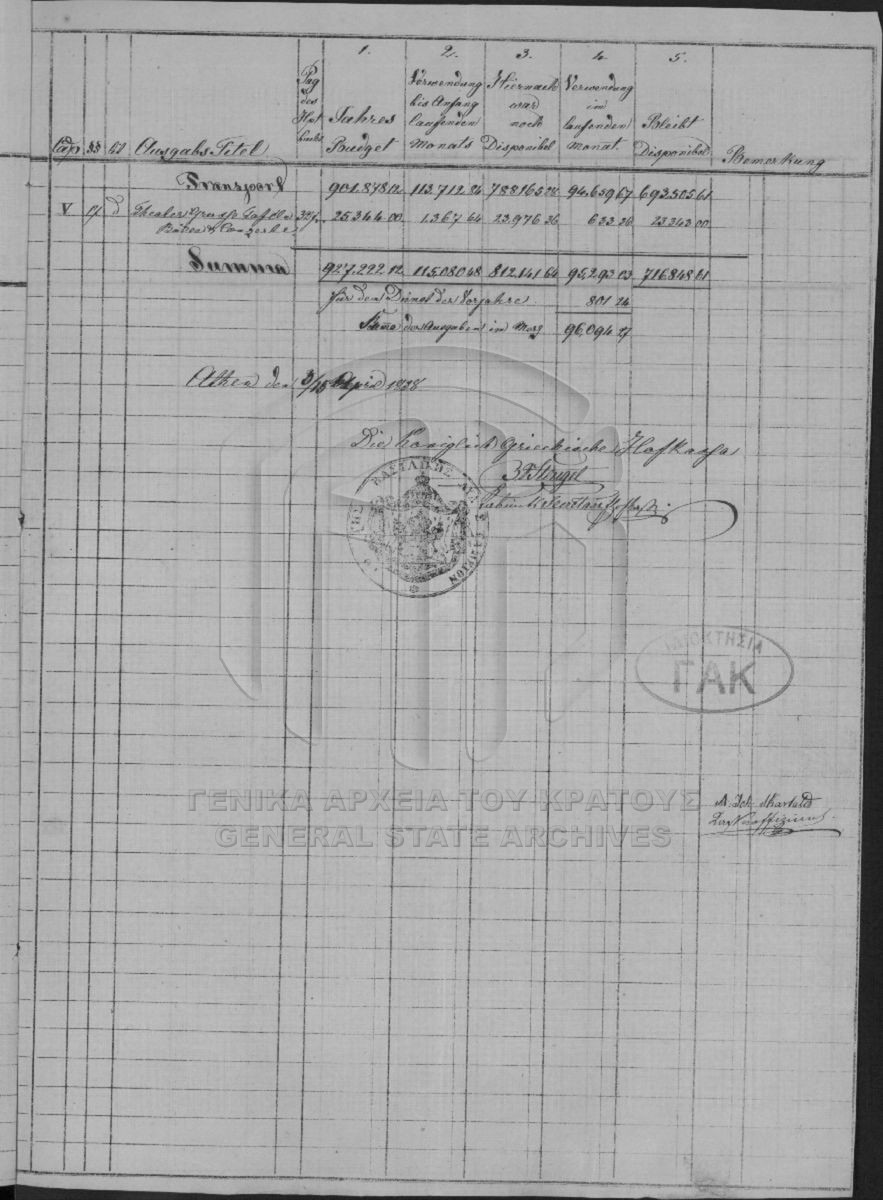 1. 2. 3. 4. 5.
Cap. §§ Lit Ausgabs Titel Pag des Hpt buchs Jahres Budget Verwendung bis Anfang laufenden Monats Hiernach war noch Disponibel Verwendung im laufenden Monat. Bleibt Disponibel Bemerkung
Transport 901.878 12 113.712 84 788165 28 94.659 67 693.505 61
V 17 d Theater Grosse Tafeln 327. 25.344 00 1.367 64 23.976 36 633 36 23.343 00
Bälle & Conzerte
Summa 927.222 12 115.080 48 812.141 64 95.293 03 716.848 61
für den Dienst der Vorjahre 801 24
Summa der Ausgaben im März 96,094 27
Athen den 3/15 April 1838
Die Königlich Griechische Hofkasse
ΙΔΙΟΚΤΗΣΙΑ
ΓΑΚ
ΓΕΝΙΚΑ ΑΡΧΕΙΑ ΤΟΥ ΚΡΑΤΟΥΣ
GENERAL STATE ARCHIVES